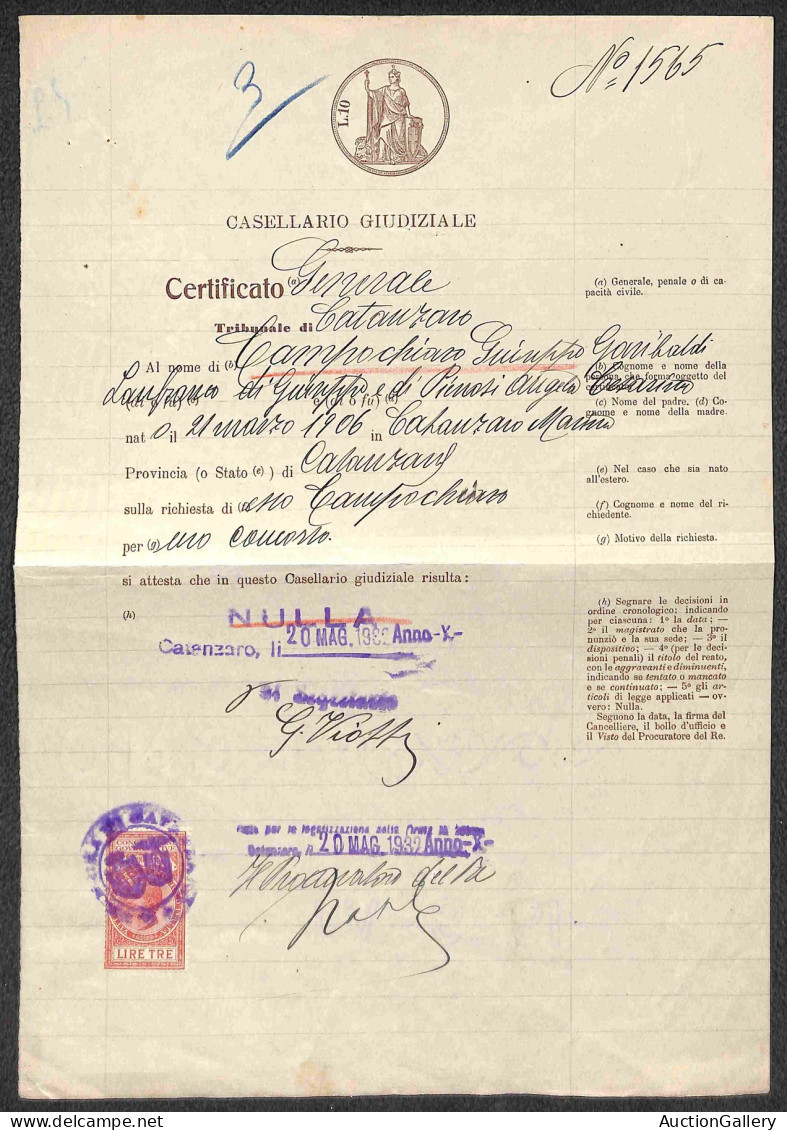 3
Nº 1565
L.10
CASELLARIO GIUDIZIALE
Certificato (a) Generale
Tribunale di Catanzaro
Al nome di (b) Campochiaro Giuseppe Garibaldi
Lanfranco di Giuseppe e di Angela Cesarina
nat o il 21 marzo 1906 in Catanzaro Marina
Provincia (o Stato (e) ) di Catanzaro
sulla richiesta di esso Campochiaro
per (g) uso concorso.
si attesta che in questo Casellario giudiziale risulta :
(h)
NULLA
Catanzaro, li 20 MAG. 1932 Anno -X-
Il Segretario
G. Viotti
(a) Generale, penale o di ca-
pacità civile.
(b) Cognome e nome della
persona che forma oggetto del
(c) Nome del padre. (d) Co-
gnome e nome della madre.
(e) Nel caso che sia nato
all'estero.
(f) Cognome e nome del ri-
chiedente.
(g) Motivo della richiesta.
(h) Segnare le decisioni in
ordine cronologico: indicando
per ciascuna: 1º la data ; —
2º il magistrato che la pro-
nunziò e la sua sede; — 3º il
dispositivo; — 4º (per le deci-
sioni penali) il titolo del reato,
con le aggravanti e diminuenti,
indicando se tentato o mancato
e se continuato; — 5º gli ar-
ticoli di legge applicati — ov-
vero: Nulla.
Seguono la data, la firma del
Cancelliere, il bollo d'ufficio e
il Visto del Procuratore del Re.
per la legalizzazione della firma
Catanzaro, li 20 MAG. 1932 Anno -X-
Il Procuratore del Re
LIRE TRE
AuctionGallery